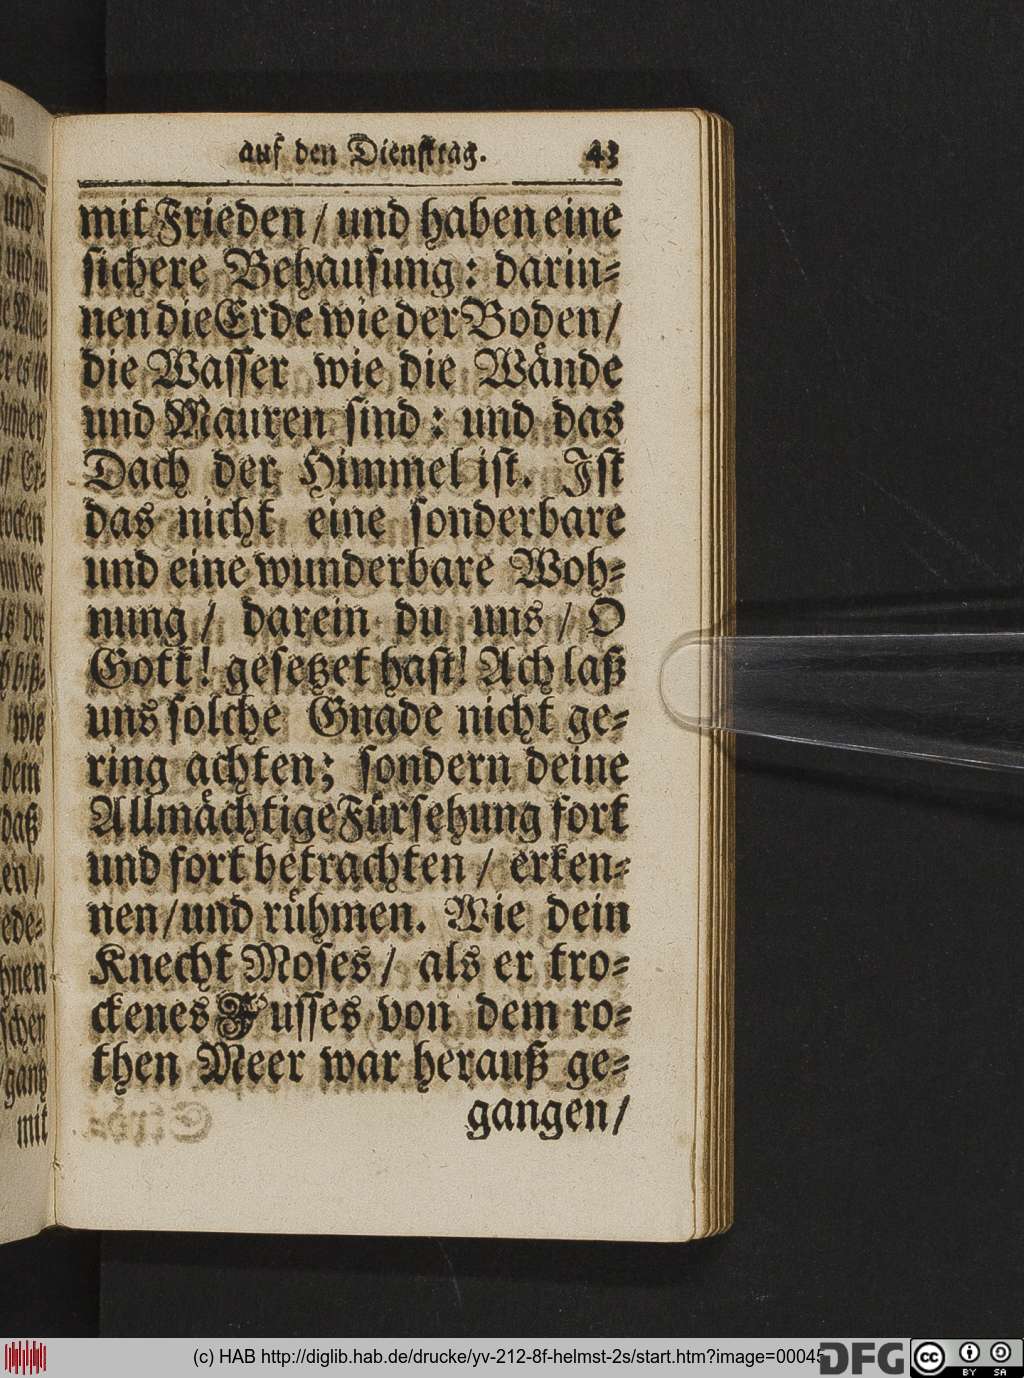 auf den Dienstag. 43
mit Frieden / und haben eine
sichere Behausung: darin-
nen die Erde wie der Boden /
die Wasser wie die Wände
und Mauren sind: und das
Dach der Himmel ist. Ist
das nicht eine sonderbare
und eine wunderbare Woh-
nung / darein du uns / O
Gott! gesetzet hast! Ach laß
uns solche Gnade nicht ge-
ring achten; sondern deine
Allmächtige Fürsehung fort
und fort betrachten / erken-
nen / und rühmen. Wie dein
Knecht Moses / als er tro-
ckenes Fusses von dem ro-
then Meer war herauß ge-
gangen /
und
und
er es ist
wunder /
rocken
die
der
wie
dein
daß
en /
ede-
hnen
schen
gantz
mit
(c) HAB http://diglib.hab.de/drucke/yv-212-8f-helmst-2s/start.htm?image=00045
DFG
cc BY SA